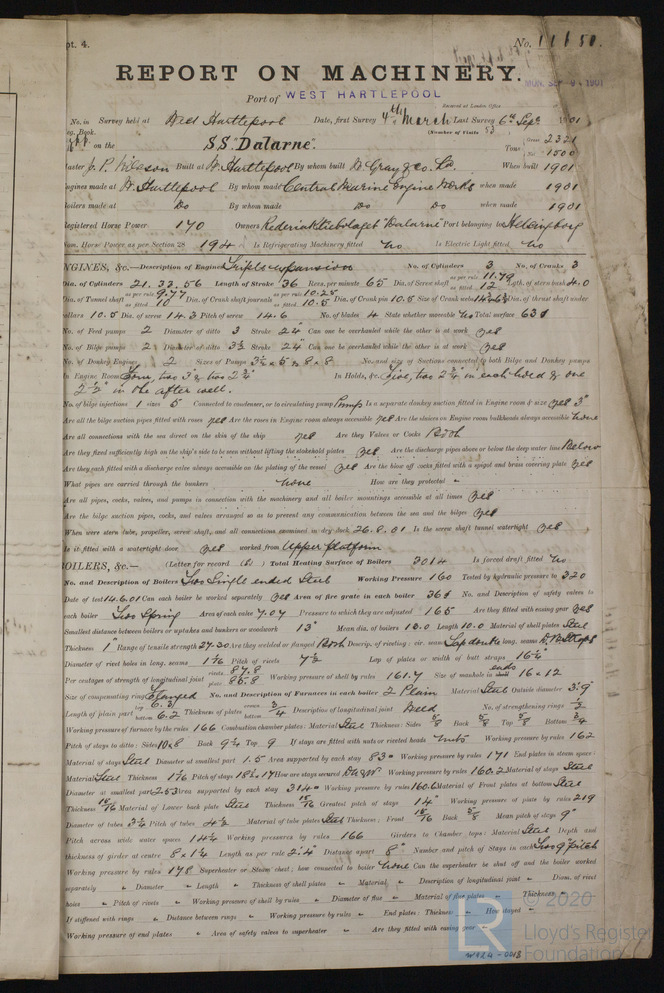 pt. 4. No. 11650.
REPORT ON MACHINERY.
MON. SEP 9. 1901
Port of WEST HARTLEPOOL
Received at London Office
No. in Survey held at West Hartlepool Date, first Survey 4th March Last Survey 6th Sept. 1901
Reg. Book. (Number of Visits 53
on the S.S. "Dalarne". Tons Gross 2321 Net 1500
Master J. P. Nilsson Built at W. Hartlepool By whom built W. Gray & Co. Ld. When built 1901
Engines made at W. Hartlepool By whom made Central Marine Engine Works when made 1901
Boilers made at Do By whom made Do Do when made 1901
Registered Horse Power 170 Owners Rederiaktiebolaget "Dalarne" Port belonging to Helsingborg
Nom. Horse Power as per Section 28 194 Is Refrigerating Machinery fitted No Is Electric Light fitted No
ENGINES, &c.—Description of Engines Triple expansion No. of Cylinders 3 No. of Cranks 3
Dia. of Cylinders 21. 33. 56 Length of Stroke 36 Revs. per minute 65 Dia. of Screw shaft as per rule 11.79 as fitted 12 Lgth. of stern bush 4.0
Dia. of Tunnel shaft as per rule 9.77 as fitted 10 Dia. of Crank shaft journals as per rule 10.25 as fitted 10.5 Dia. of Crank pin 10.5 Size of Crank webs Dia. of thrust shaft under
collars 10.5 Dia. of screw 14.3 Pitch of screw 14.6 No. of blades 4 State whether moveable No Total surface 63
No. of Feed pumps 2 Diameter of ditto 3 Stroke 24" Can one be overhauled while the other is at work yes
No. of Bilge pumps 2 Diameter of ditto 3½ Stroke 24" Can one be overhauled while the other is at work yes
No. of Donkey Engines 2 Sizes of Pumps No. and size of Suctions connected to both Bilge and Donkey pumps
In Engine Room Four, two 3", two 2¾" In Holds, &c. Five, two 2¾" in each hold & one
2½" in the after well.
No. of bilge injections 1 sizes 5 Connected to condenser, or to circulating pump Pump Is a separate donkey suction fitted in Engine room & size yes 3"
Are all the bilge suction pipes fitted with roses yes Are the roses in Engine room always accessible yes Are the sluices on Engine room bulkheads always accessible none
Are all connections with the sea direct on the skin of the ship yes Are they Valves or Cocks Both
Are they fixed sufficiently high on the ship's side to be seen without lifting the stokehold plates yes Are the discharge pipes above or below the deep water line Below
Are they each fitted with a discharge valve always accessible on the plating of the vessel yes Are the blow off cocks fitted with a spigot and brass covering plate yes
What pipes are carried through the bunkers none How are they protected "
Are all pipes, cocks, valves, and pumps in connection with the machinery and all boiler mountings accessible at all times yes
Are the bilge suction pipes, cocks, and valves arranged so as to prevent any communication between the sea and the bilges yes
When were stern tube, propeller, screw shaft, and all connections examined in dry dock 26.8.01 Is the screw shaft tunnel watertight yes
Is it fitted with a watertight door yes worked from Upper platform
BOILERS, &c.— (Letter for record (S) ) Total Heating Surface of Boilers 3014 Is forced draft fitted No
No. and Description of Boilers Two Single ended Steel Working Pressure 160 Tested by hydraulic pressure to 320
Date of test 14.6.01 Can each boiler be worked separately yes Area of fire grate in each boiler 36 No. and Description of safety valves to
each boiler Two Spring Area of each valve 7.07 Pressure to which they are adjusted 165 Are they fitted with easing gear yes
Smallest distance between boilers or uptakes and bunkers or woodwork 13" Mean dia. of boilers 13.0 Length 10.0 Material of shell plates Steel
Thickness 1" Range of tensile strength 27.30 Are they welded or flanged Both Descrip. of riveting: cir. seams Lap double long. seams D.B. Straps
Diameter of rivet holes in long. seams 1 1/16 Pitch of rivets 7½ Lap of plates or width of butt straps 16¼"
Per centages of strength of longitudinal joint rivets 87.8 plate 85.8 Working pressure of shell by rules 161.7 Size of manhole in ends 16 x 12
Size of compensating ring flanged No. and Description of Furnaces in each boiler 2 Plain Material Steel Outside diameter 3'.9"
Length of plain part top 6.3 bottom 6.2 Thickness of plates crown bottom ¾ Description of longitudinal joint Weld No. of strengthening rings
Working pressure of furnace by the rules 166 Combustion chamber plates: Material Steel Thickness: Sides 5/8 Back 5/8 Top 5/8 Bottom ¾
Pitch of stays to ditto: Sides 10x8 Back 9¼ Top 9 If stays are fitted with nuts or riveted heads Nuts Working pressure by rules 162
Material of stays Steel Diameter at smallest part 1.5 Area supported by each stay 83 Working pressure by rules 171 End plates in steam space:
Material Steel Thickness 1 1/16 Pitch of stays How are stays secured D.N.&W. Working pressure by rules 160.2 Material of stays Steel
Diameter at smallest part 2.53 Area supported by each stay 314 Working pressure by rules 160.6 Material of Front plates at bottom Steel
Thickness 15/16 Material of Lower back plate Steel Thickness 15/16 Greatest pitch of stays 14" Working pressure of plate by rules 219
Diameter of tubes 3¼ Pitch of tubes 4½ Material of tube plates Steel Thickness: Front 15/16 Back 5/8 Mean pitch of stays 9"
Pitch across wide water spaces 14¼ Working pressures by rules 166 Girders to Chamber tops: Material Steel Depth and
thickness of girder at centre 8 x 1¼ Length as per rule 2'.4" Distance apart 8" Number and pitch of Stays in each Two 9" pitch
Working pressure by rules 178 Superheater or Steam chest; how connected to boiler None Can the superheater be shut off and the boiler worked
separately " Diameter " Length " Thickness of shell plates " Material " Description of longitudinal joint " Diam. of rivet
holes " Pitch of rivets " Working pressure of shell by rules " Diameter of flue " Material of flue plates " Thickness "
If stiffened with rings " Distance between rings " Working pressure by rules " End plates: Thickness " How stayed "
Working pressure of end plates " Area of safety valves to superheater " Are they fitted with easing gear
© 2020
LR Lloyd's Register
Foundation
W924-0018